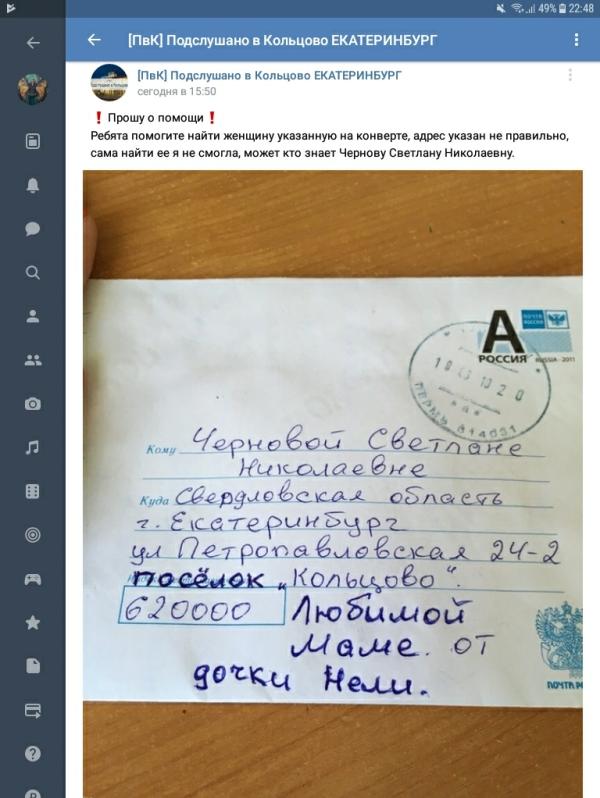 49% 22:48
[ПвК] Подслушано в Кольцово ЕКАТЕРИНБУРГ
[ПвК] Подслушано в Кольцово ЕКАТЕРИНБУРГ
сегодня в 15:50
❗ Прошу о помощи ❗
Ребята помогите найти женщину указанную на конверте, адрес указан не правильно,
сама найти ее я не смогла, может кто знает Чернову Светлану Николаевну.
ПОЧТА РОССИИ
А
РОССИЯ RUSSIA · 2011
ПЕРМЬ 614031
Кому Черновой Светлане
Николаевне
Куда Свердловская область
г. Екатеринбург
ул Петропавловская 24-2
посёлок „Кольцово".
620000 Любимой
Маме. от
дочки Нели.
ПОЧТА